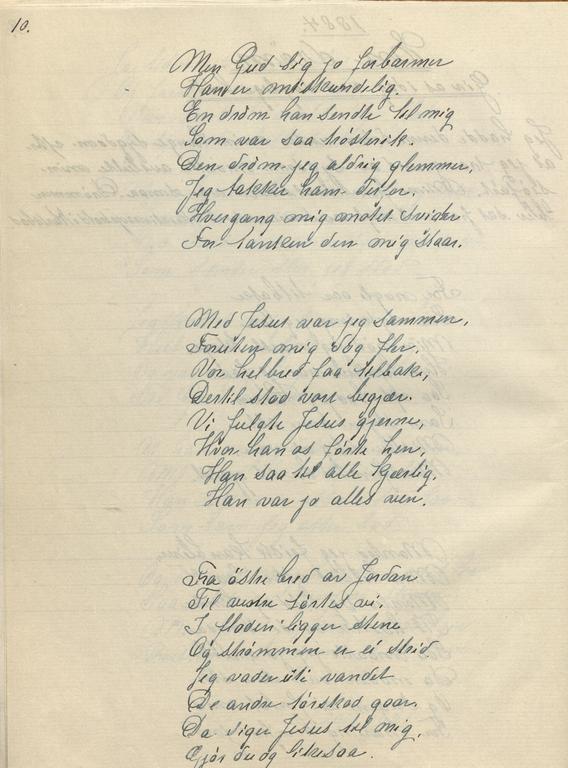 10.
Men Gud sig jo forbarmer
Han er miskundelig.
En dröm han sendte til mig
Som var saa trösterik.
Den dröm jeg aldrig glemmer,
Jeg takker ham derfor.
Hvergang mig modet svider
For tanken den mig staar.
Med Jesus var jeg sammen,
Foruten mig dog fler.
Vor helbred faa tilbake,
Dertil stod vort begjær.
Vi fulgte Jesus gjerne,
Hvor han os förte hen,
Han saa til alle kjærlig,
Han var jo alles ven.
Fra östre bred av Jordan
Til vestre förtes vi.
I floden ligger stene
Og strömmen er ei strid
Jeg vader uti vandet
De andre törskod gaar.
Da siger Jesus til mig,
Gjör du og likesaa.